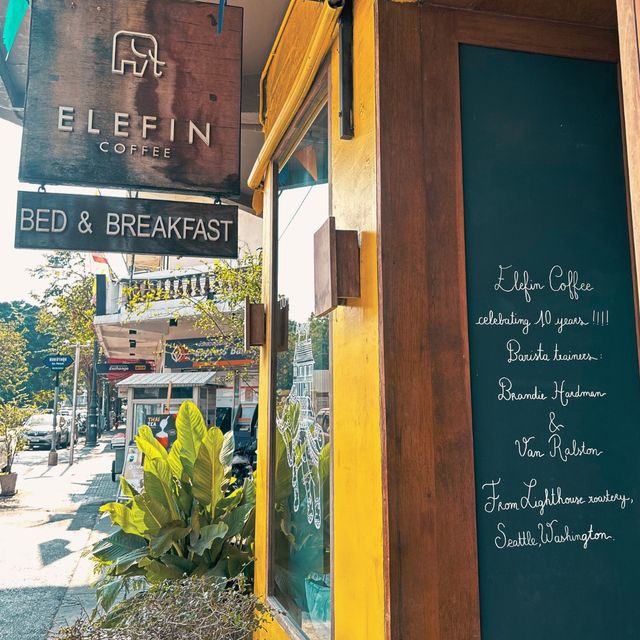 ELEFIN
COFFEE
BED & BREAKFAST
Elefin Coffee
celebating 10 years !!!!
Barista trainers:
Brandie Hardman
&
Van Ralston
From Lighthouse roastery,
Seattle, Washington.